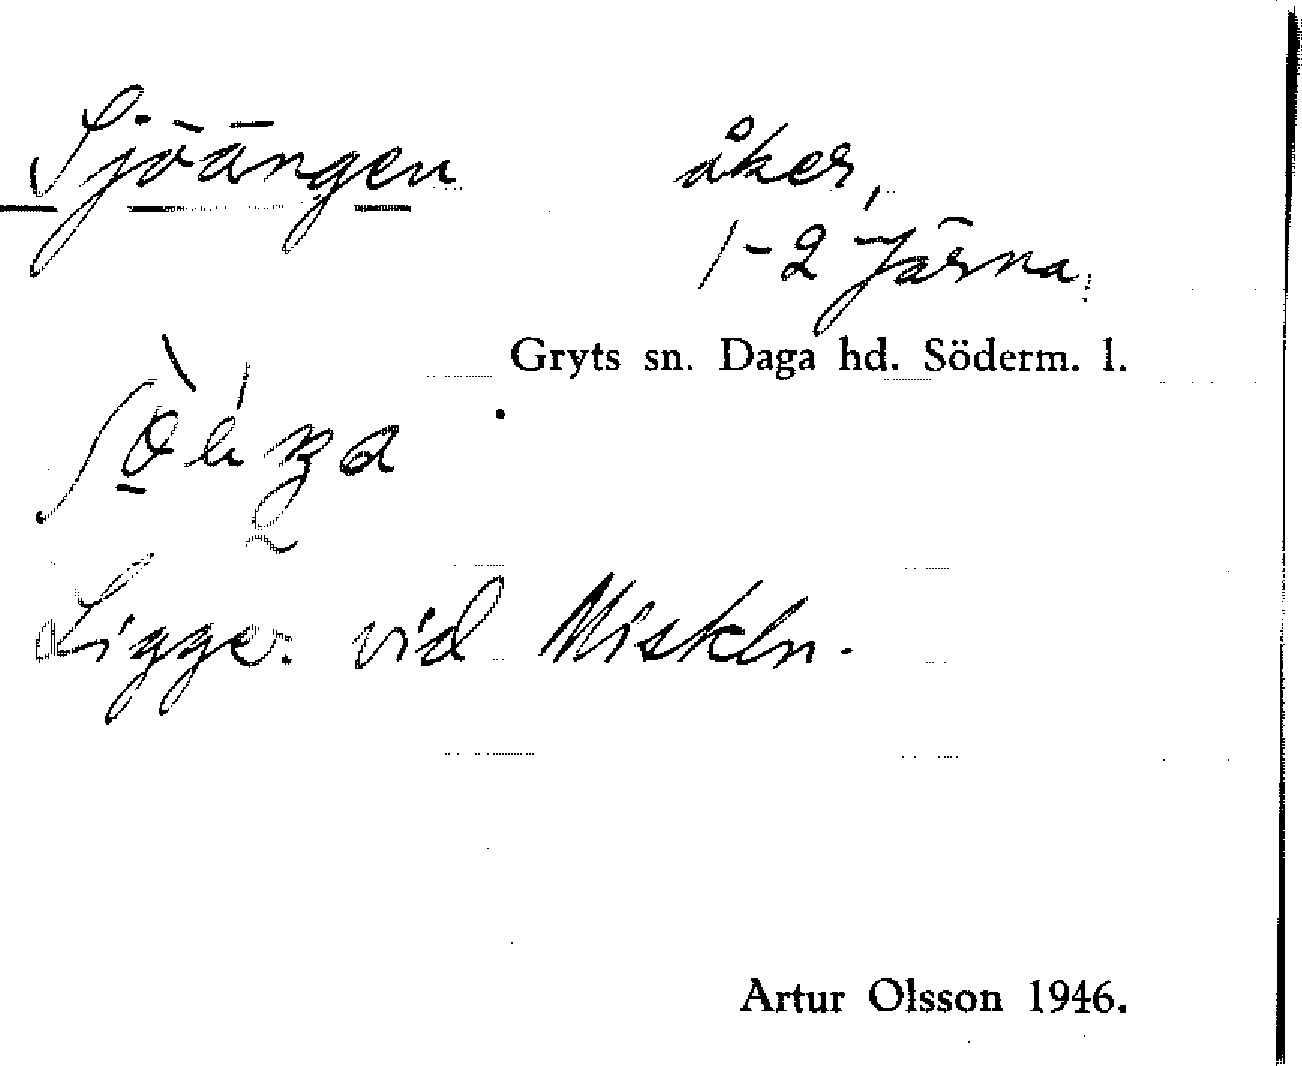 Sjöängen åker,
1-2 Järna
Gryts sn. Daga hd. Söderm. l.
Ligger vid Miskln.
Artur Olsson 1946.